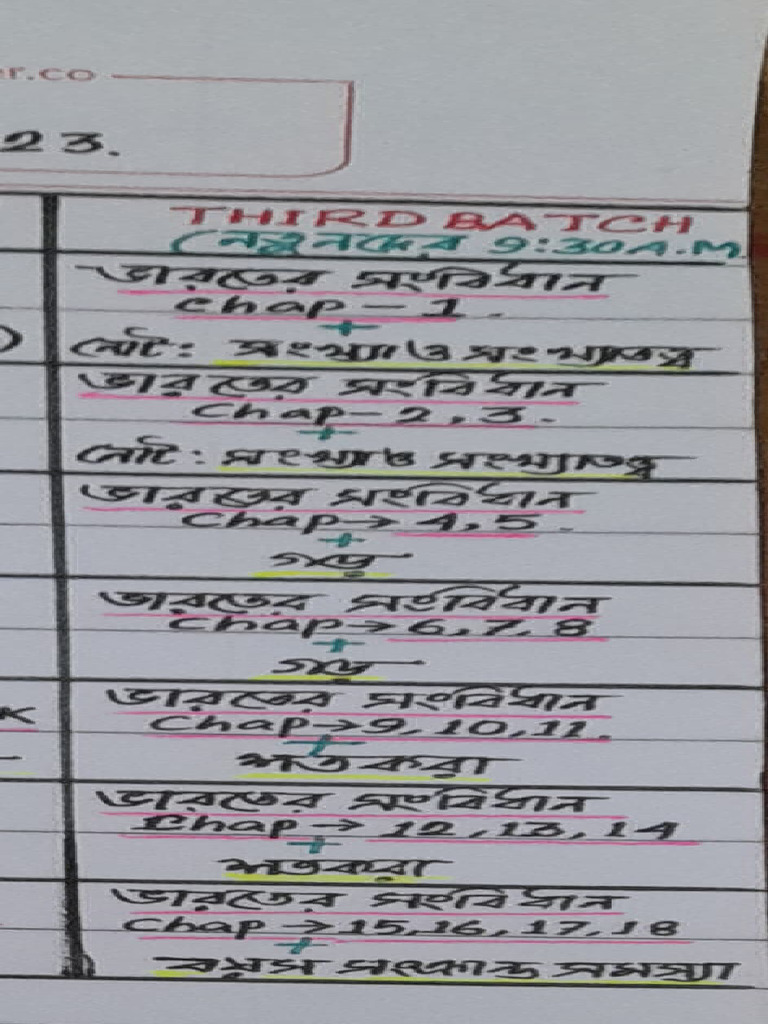 er.co
23.
THIRD BATCH
(নতুনদের 9:30A.M
ভারতের সংবিধান
Chap - 1.
+
)
নোট: সংখ্যা ও সংখ্যাতত্ত্ব
ভারতের সংবিধান
Chap - 2, 3.
+
নোট: সংখ্যা ও সংখ্যাতত্ত্ব
ভারতের সংবিধান
Chap → 4, 5.
+
গড়
ভারতের সংবিধান
Chap → 6, 7, 8
+
গড়
ভারতের সংবিধান
K
Chap → 9, 10, 11.
+
শতকরা
ভারতের সংবিধান
Chap → 12, 13, 14
+
শতকরা
ভারতের সংবিধান
Chap → 15, 16, 17, 18
+
বয়স সংক্রান্ত সমস্যা